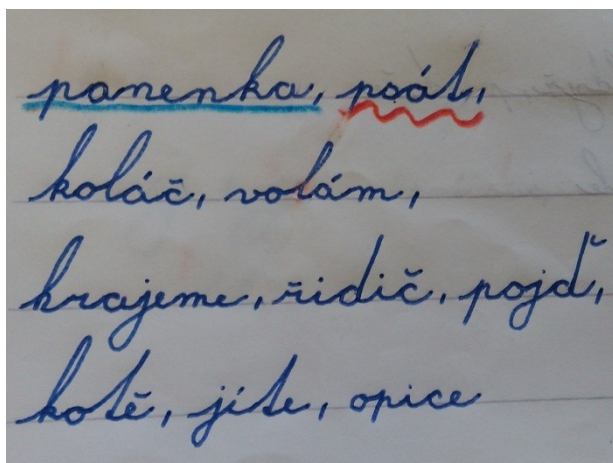 panenka, psát,
koláč, volám,
hrajeme, řidič, pojď,
kotě, jíte, opice